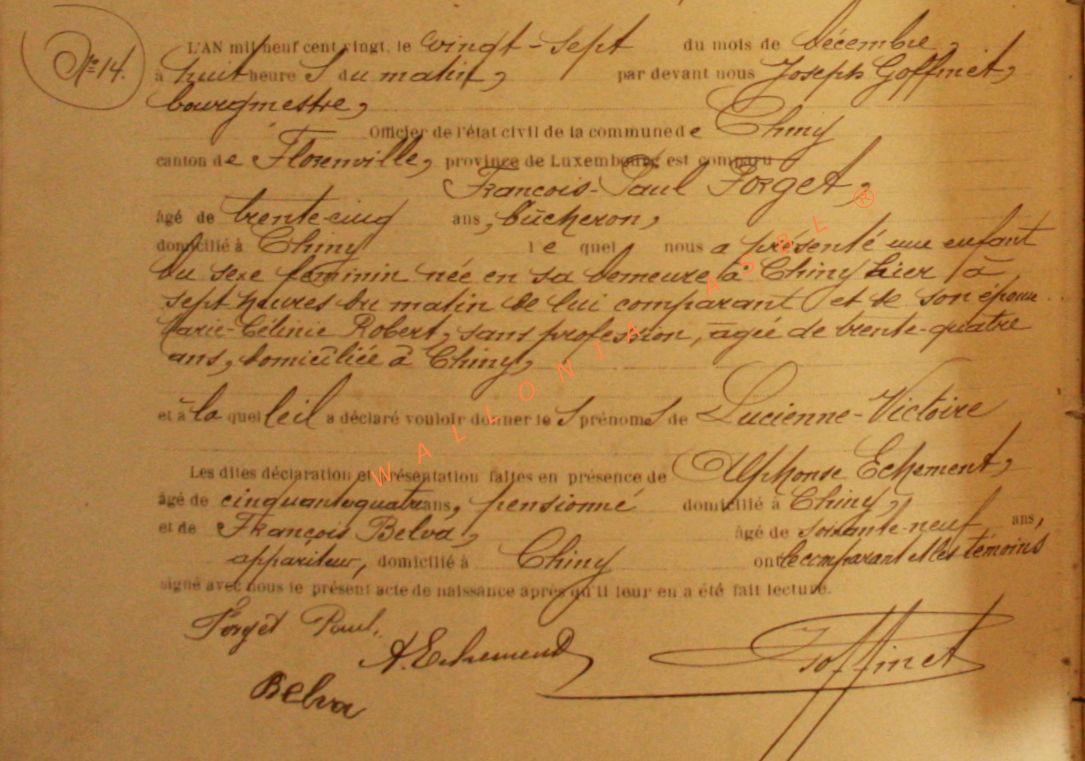 N° 14.
L'AN mil neuf cent vingt, le vingt-sept du mois de décembre,
à huit heure s du matin, par devant nous Joseph Goffinet,
bourgmestre,
Officier de l'état civil de la commune de Chiny
canton de Florenville, province de Luxembourg est comparu
François-Paul Forget,
âgé de trente-cinq ans, bûcheron,
domicilié à Chiny le quel nous a présenté une enfant
du sexe féminin née en sa demeure à Chiny hier à
sept heures du matin de lui comparant et de son épouse
Marie-Célinie Robert, sans profession, âgée de trente-quatre
ans, domiciliée à Chiny,
et à la quel le il a déclaré vouloir donner le s prénoms de Lucienne-Victoire
Les dites déclaration et présentation faites en présence de Alphonse Echement,
âgé de cinquante quatre ans, pensionné domicilié à Chiny,
et de François Belva, âgé de soixante-neuf ans,
appariteur, domicilié à Chiny ont le comparant et les témoins
signé avec nous le présent acte de naissance après qu'il leur en a été fait lecture.
Forget Paul.
A. Echement
Goffinet
Belva
WALLONIA ASBL ®